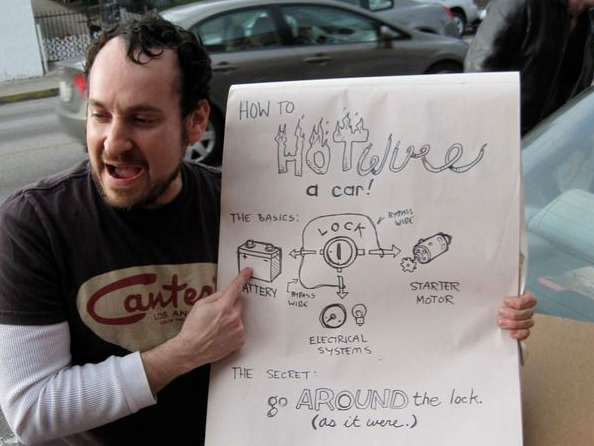 HOW TO
HOT wire
a car!
THE BASICS:
BYPASS
WIRE
LOCK
BATTERY
BYPASS
WIRE
STARTER
MOTOR
ELECTRICAL
SYSTEMS
THE SECRET:
go AROUND the lock.
(as it were.)
Canter's
LOS AN